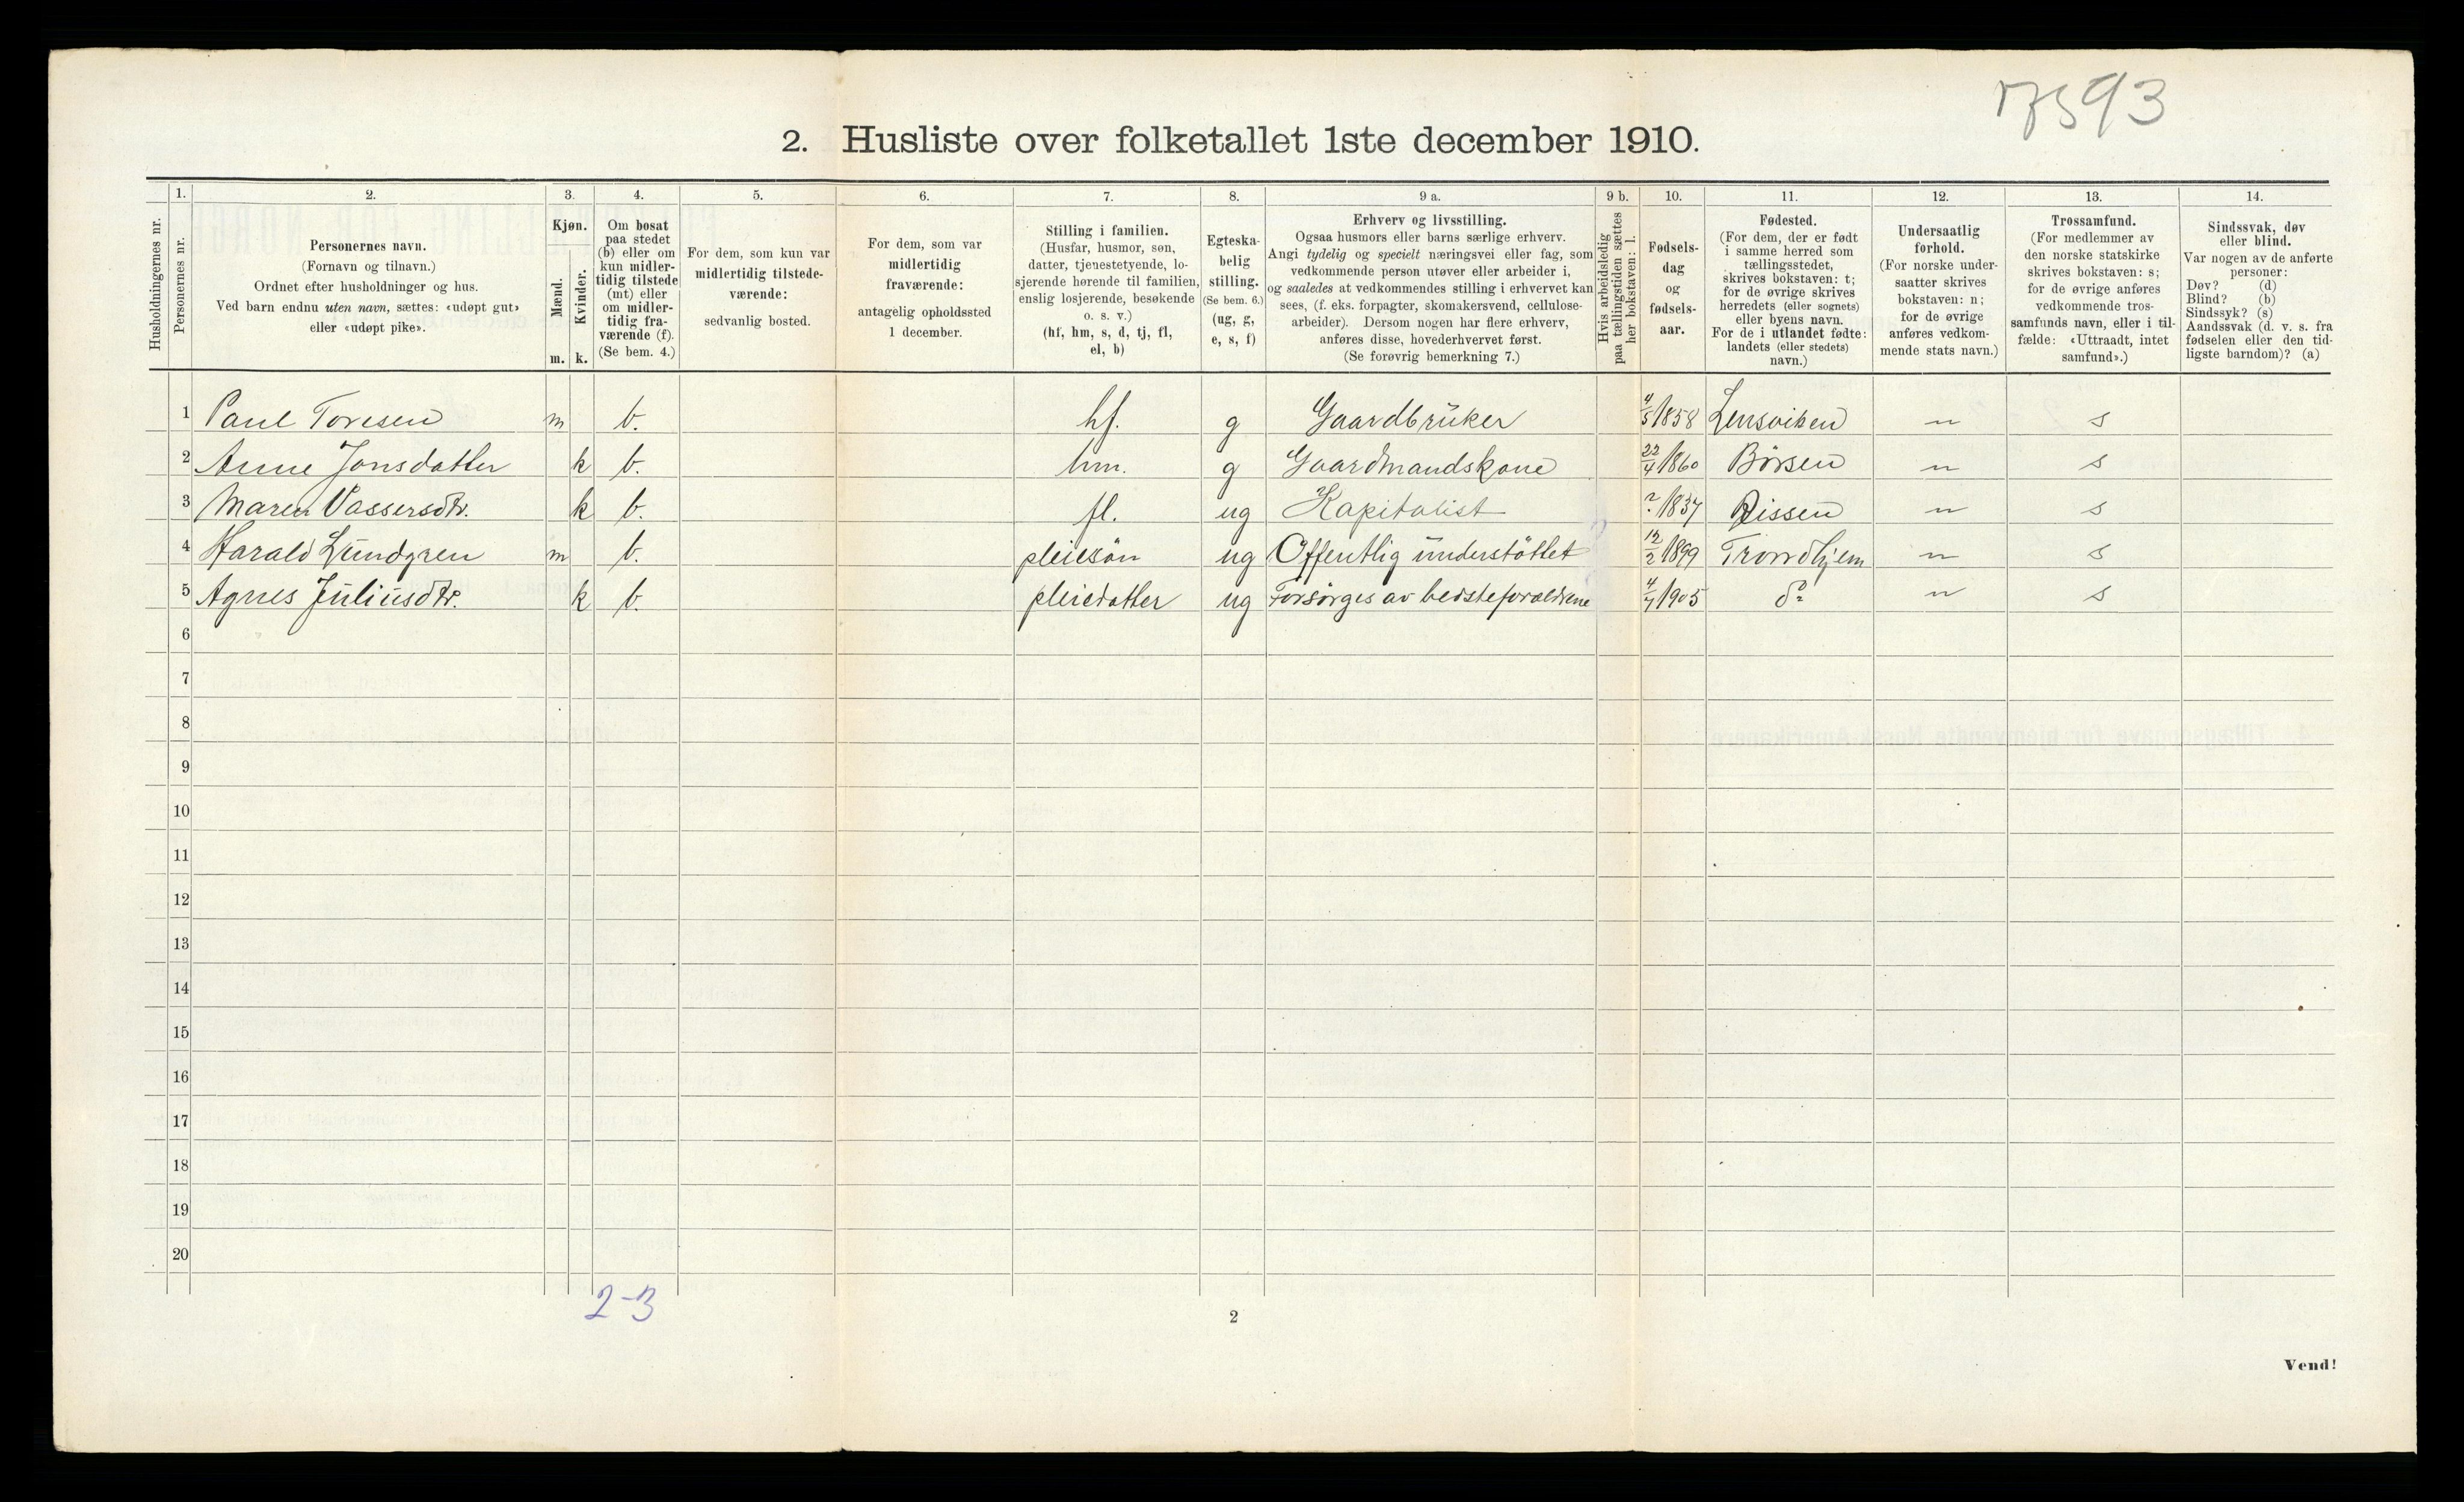 2. Husliste over folketallet 1ste december 1910.
1. 2. 3. 4. 5. 6. 7. 8. 9 a. 9 b. 10. 11. 12. 13. 14.
Husholdningernes nr.
Personernes nr.
Personernes navn.
(Fornavn og tilnavn.)
Ordnet efter husholdninger og hus.
Ved barn endnu uten navn, sættes: «udøpt gut»
eller «udøpt pike».
Kjøn.
Mænd.
Kvinder.
m. k.
Om bosat
paa stedet
(b) eller om
kun midler-
tidig tilstede
(mt) eller
om midler-
tidig fra-
værende (f).
(Se bem. 4.)
For dem, som kun var
midlertidig tilstede-
værende:
sedvanlig bosted.
For dem, som var
midlertidig
fraværende:
antagelig opholdssted
1 december.
Stilling i familien.
(Husfar, husmor, søn,
datter, tjenestetyende, lo-
sjerende hørende til familien,
enslig losjerende, besøkende
o. s. v.)
(hf, hm, s, d, tj, fl,
el, b)
Egteska-
belig
stilling.
(Se bem. 6.)
(ug, g,
e, s, f)
Erhverv og livsstilling.
Ogsaa husmors eller barns særlige erhverv.
Angi tydelig og specielt næringsvei eller fag, som
vedkommende person utøver eller arbeider i,
og saaledes at vedkommendes stilling i erhvervet kan
sees, (f. eks. forpagter, skomakersvend, cellulose-
arbeider). Dersom nogen har flere erhverv,
anføres disse, hovederhvervet først.
(Se forøvrig bemerkning 7.)
Hvis arbeidsledig
paa tællingstiden sættes
her bokstaven: l.
Fødsels-
dag
og
fødsels-
aar.
Fødested.
(For dem, der er født
i samme herred som
tællingsstedet,
skrives bokstaven: t;
for de øvrige skrives
herredets (eller sognets)
eller byens navn.
For de i utlandet fødte:
landets (eller stedets)
navn.)
Undersaatlig
forhold.
(For norske under-
saatter skrives
bokstaven: n;
for de øvrige
anføres vedkom-
mende stats navn.)
Trossamfund.
(For medlemmer av
den norske statskirke
skrives bokstaven: s;
for de øvrige anføres
vedkommende tros-
samfunds navn, eller i til-
fælde: «Uttraadt, intet
samfund».)
Sindssvak, døv
eller blind.
Var nogen av de anførte
personer:
Døv? (d)
Blind? (b)
Sindssyk? (s)
Aandssvak (d. v. s. fra
fødselen eller den tid-
ligste barndom)? (a)
1 Paul Toresen m b. hf. g Gaardbrüker 4/5 1858 Lensviken n s
2 Anne Jonsdatter k b. hm. g Gaardmandskone 22/4 1860 Börsen n s
3 Maren Vassersdtr. k b. fl. ug Kapitalist ? 1837 Rissen n s
4 Harald Lundgren m b. pleiesön ug Offentlig understöttet 12/2 1899 Trondhjem n s
5 Agnes Juliusdtr. k b. pleiedatter ug Forsörges av bedsteforældrene 4/7 1905 do n s
6
7
8
9
10
11
12
13
14
15
16
17
18
19
20
2-3
2
Vend!